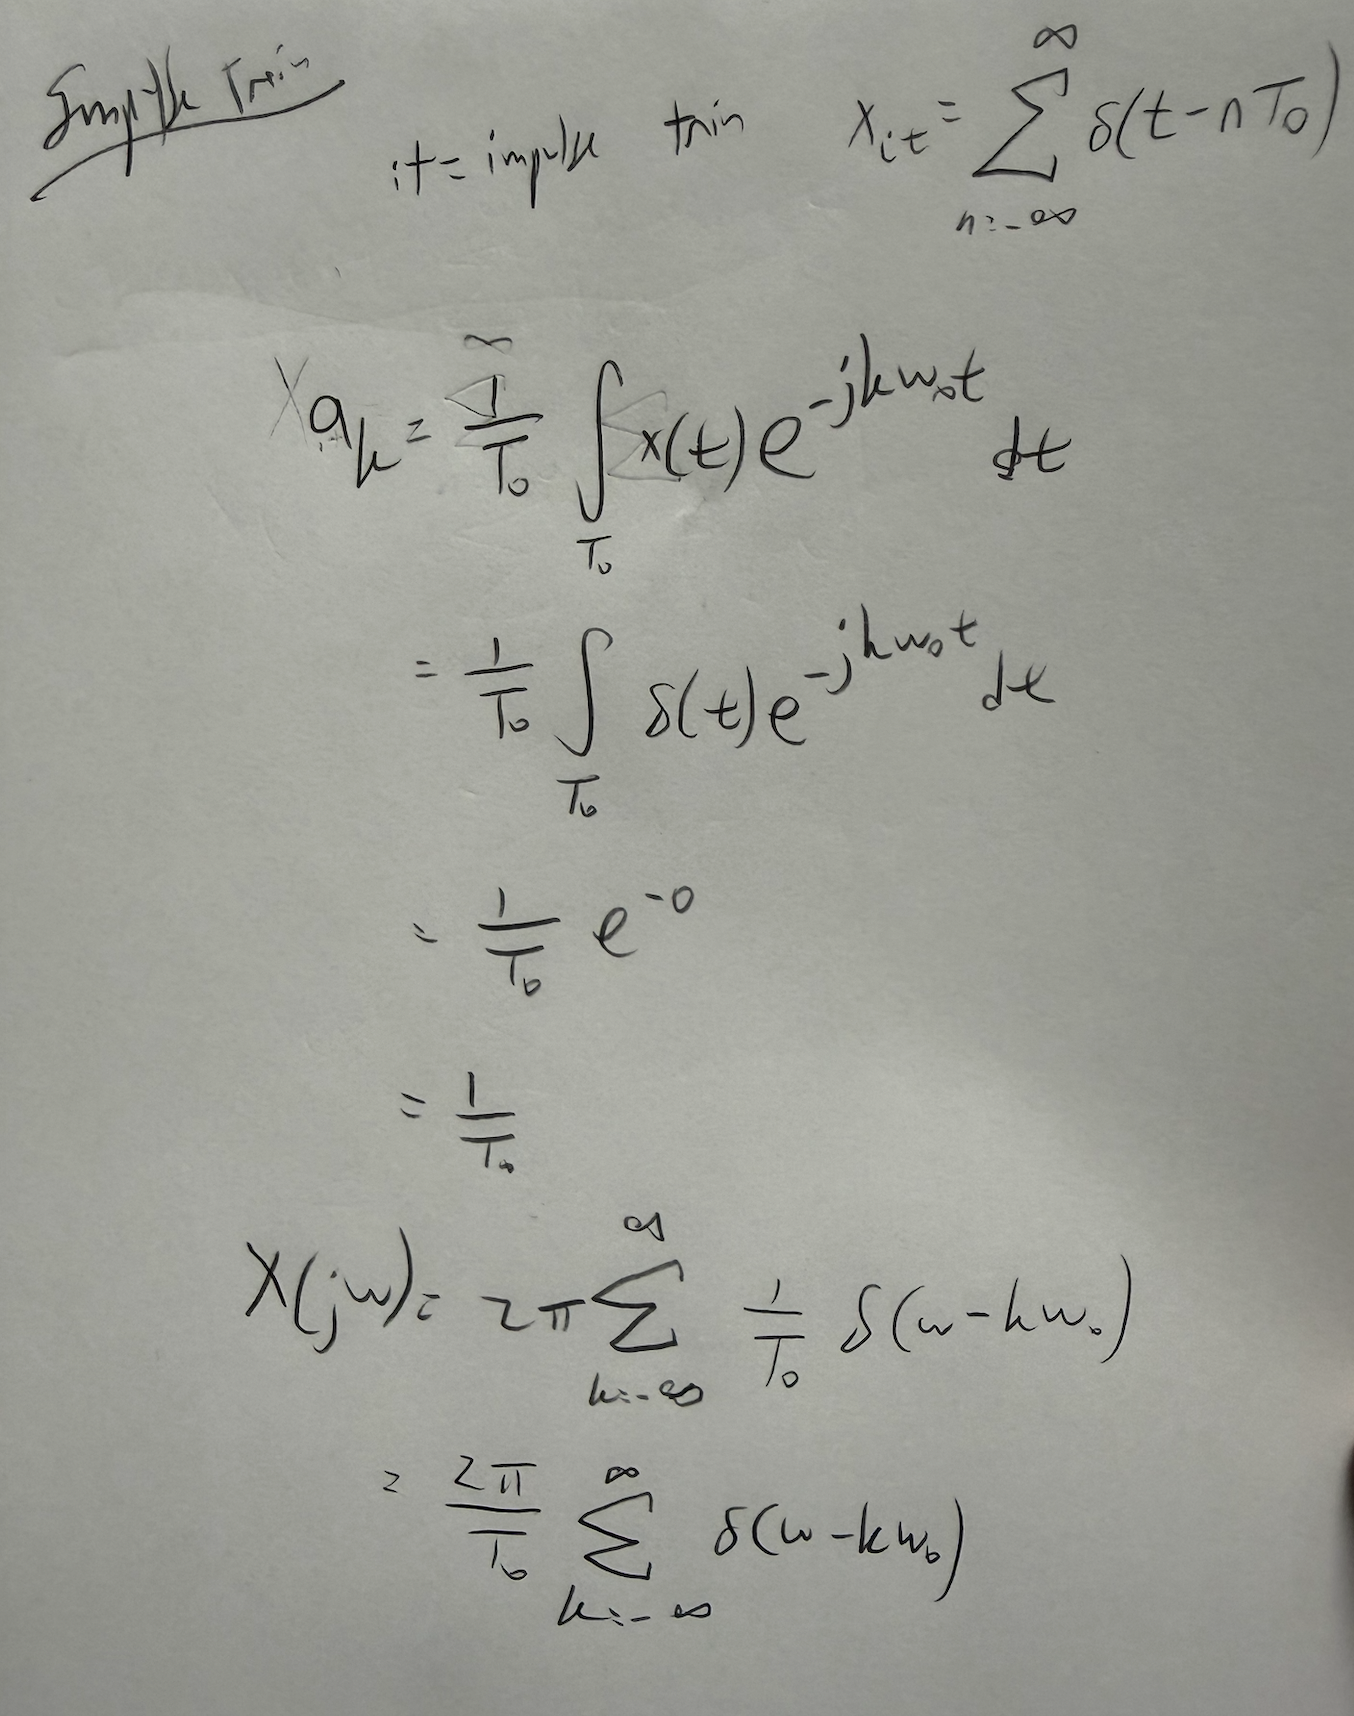 Impulse Train
it = impulse train x_it = ∑_{n=-∞}^{∞} δ(t-nT₀)
a_k = 1/T₀ ∫_{T₀} x(t) e^{-jkw₀t} dt
= 1/T₀ ∫_{T₀} δ(t) e^{-jkw₀t} dt
= 1/T₀ e^{-0}
= 1/T₀
X(jw) = 2π ∑_{k=-∞}^{∞} 1/T₀ δ(w-kw₀)
= 2π/T₀ ∑_{k=-∞}^{∞} δ(w-kw₀)